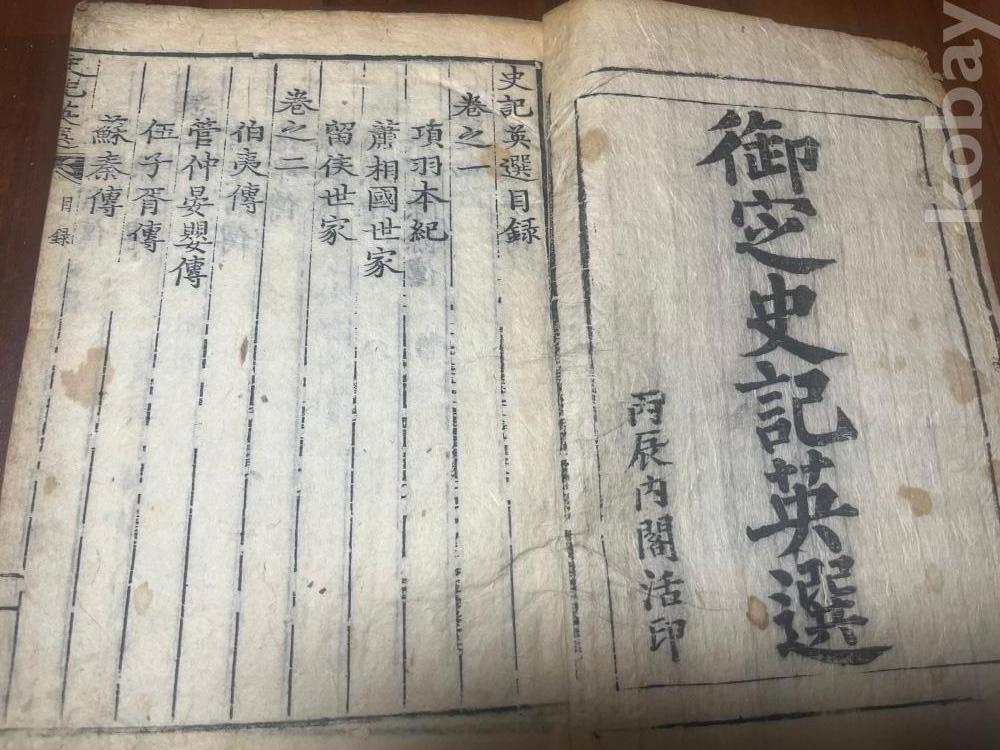 御定史記英選
丙辰內閣活印
史記英選目録
卷之一
項羽本紀
蕭相國世家
留侯世家
卷之二
伯夷傳
管仲晏嬰傳
伍子胥傳
蘇秦傳
史記英選
目録
kobay